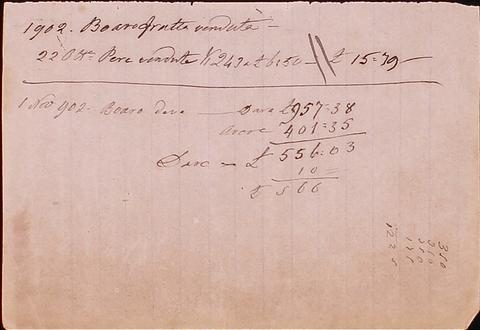 1902. Boaro frutta venduta —
22 8bre Pere vendute K 243 a £ 6:50 — // £ 15=79 —
1 Nov 902 - Boaro deve — Dare £ 957=38
Avere 401=35
Dare — £ 556=03
10 =
£ 566
350
350
350
175
1225